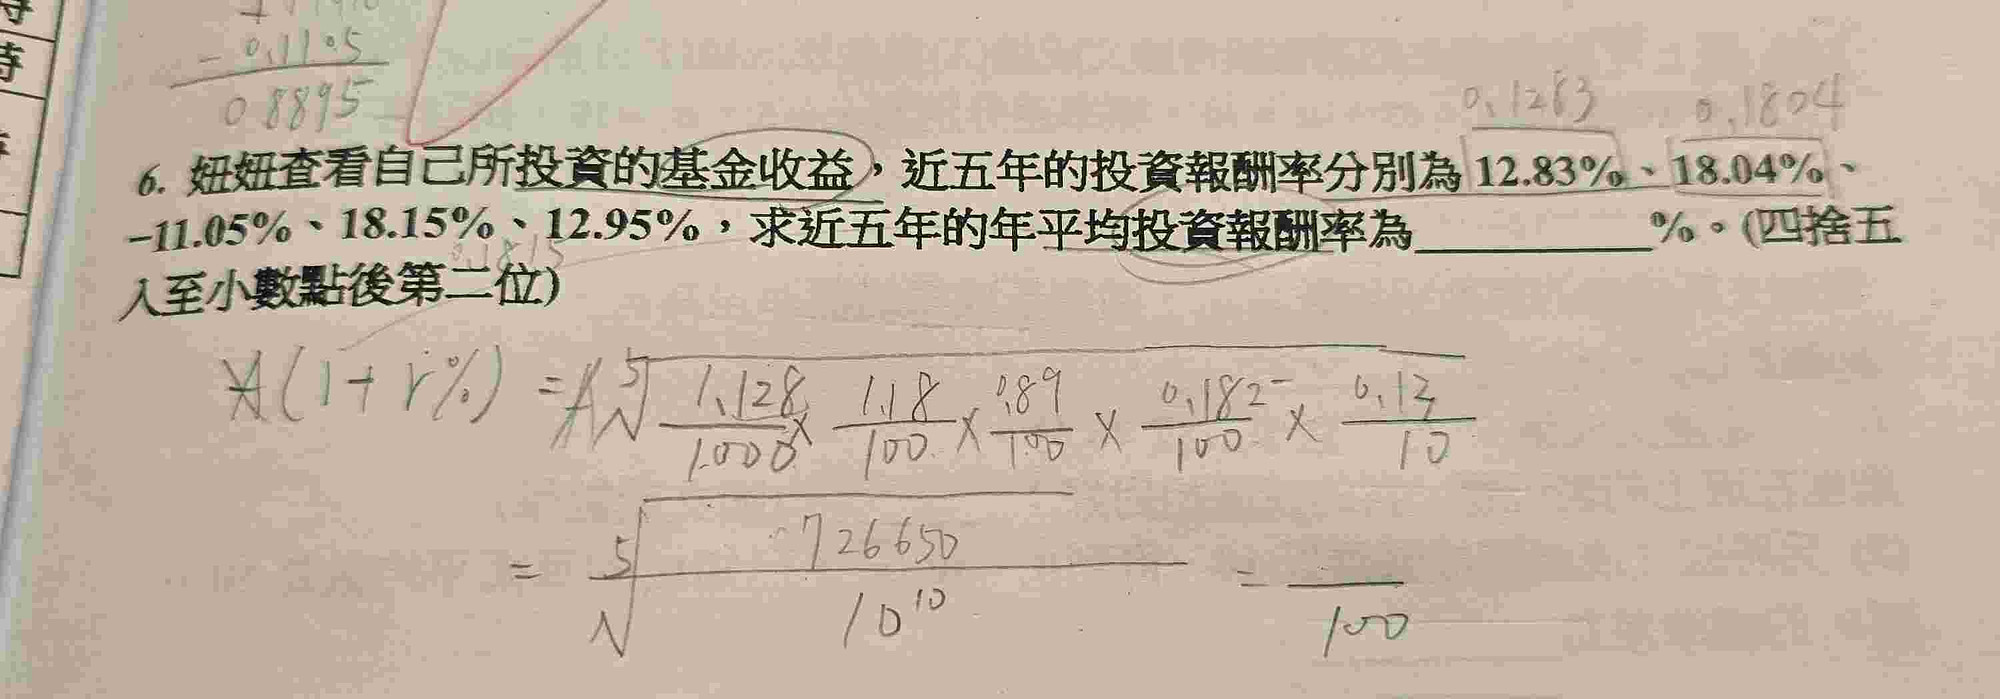 - 0.1105
0.8895
0.1283 0.1804
6. 妞妞查看自己所投資的基金收益，近五年的投資報酬率分別為 12.83%、18.04%、
-11.05%、18.15%、12.95%，求近五年的年平均投資報酬率為________%。(四捨五
0.1815
入至小數點後第二位)
A(1+r%) = A⁵√ 1.128/1000 × 1.18/100 × 0.89/100 × 0.182/100 × 0.13/10
= ⁵√ 726650/10¹⁰ = /100